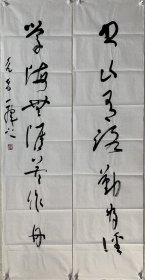 书山有路勤为径
学海無涯苦作舟